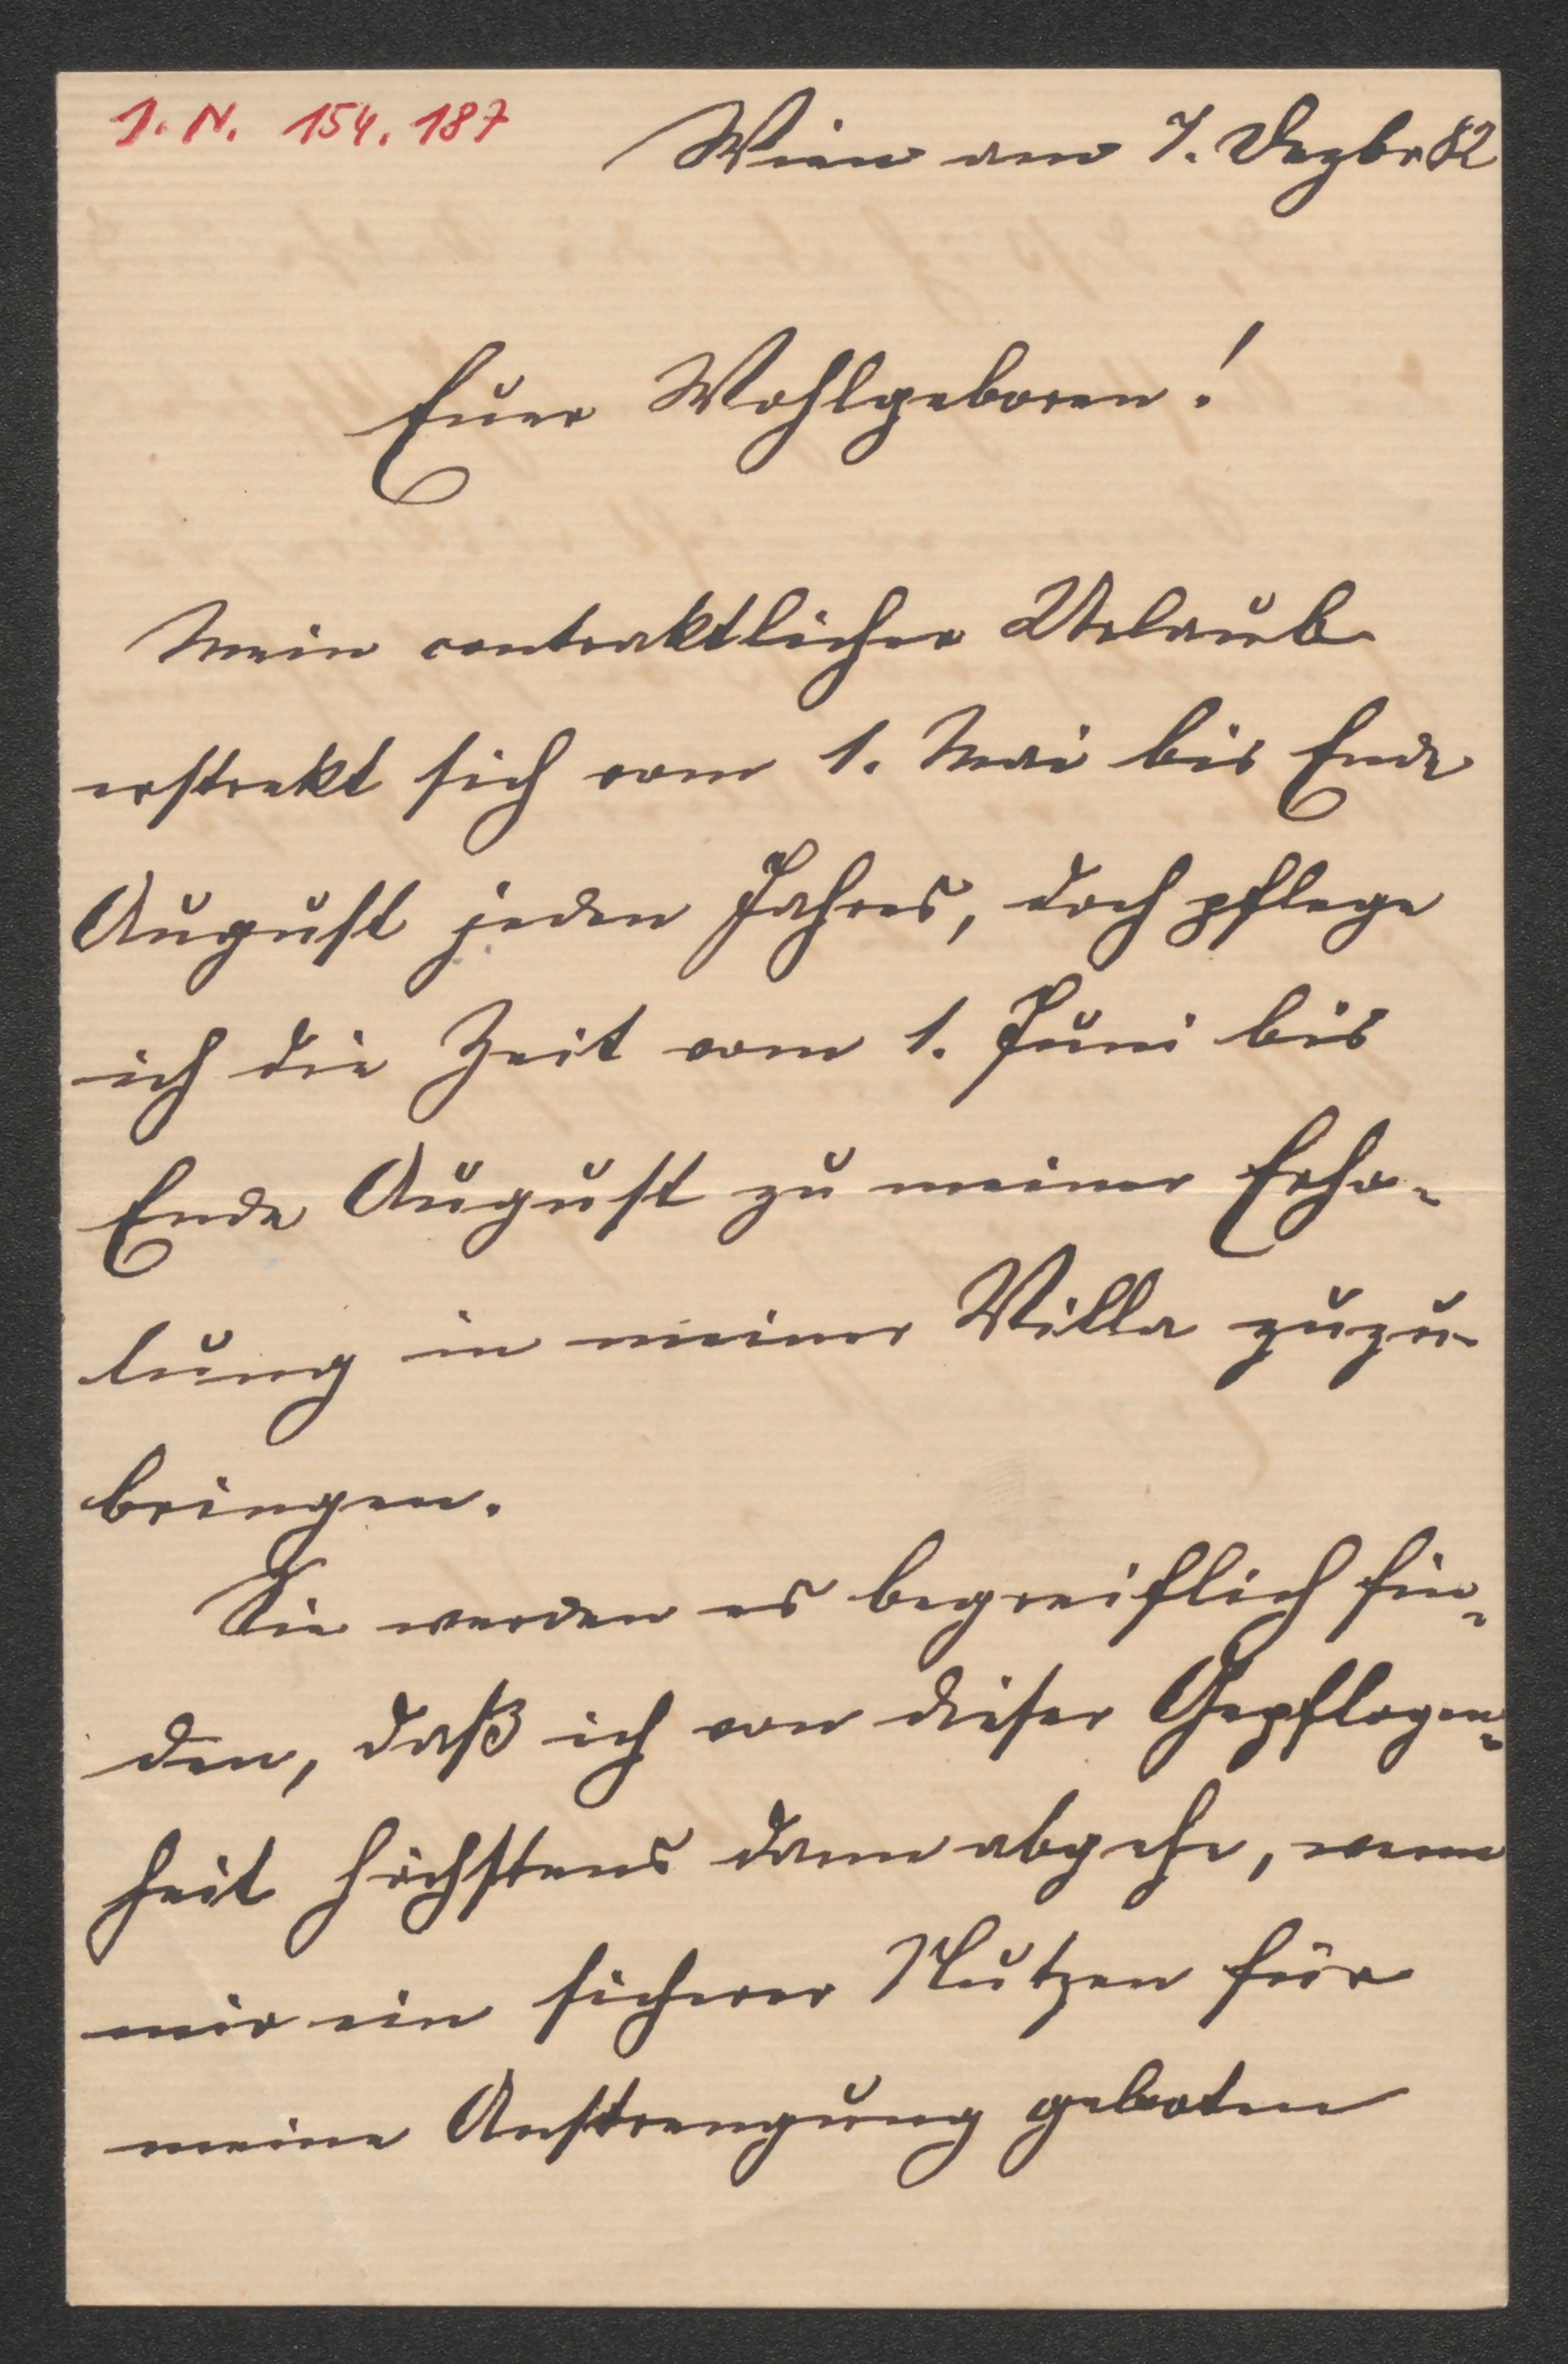 I. N. 154.187
Wien am 7. Dezbr 82
Euer Wohlgeboren!
Mein contraktlicher Urlaub
erstrekt sich vom 1. Mai bis Ende
August jeden Jahres, doch pflege
ich die Zeit vom 1. Juni bis
Ende August zu meiner Erho-
lung in meiner Villa zuzu-
bringen.
Sie werden es begreiflich fin-
den, daß ich von dieser Gepflogen-
heit höchstens dann abgehe, wenn
mir ein sicherer Nutzen für
meine Anstrengung geboten